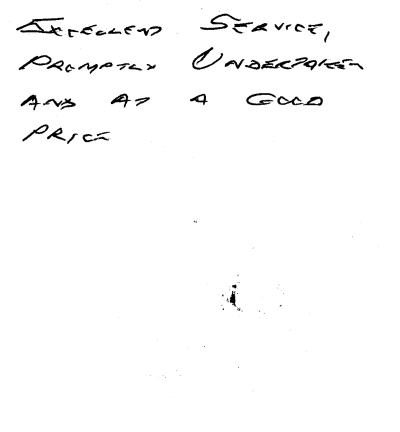 EXCELLENT SERVICE,
PROMPTLY UNDERTAKEN
AND AT A GOOD
PRICE